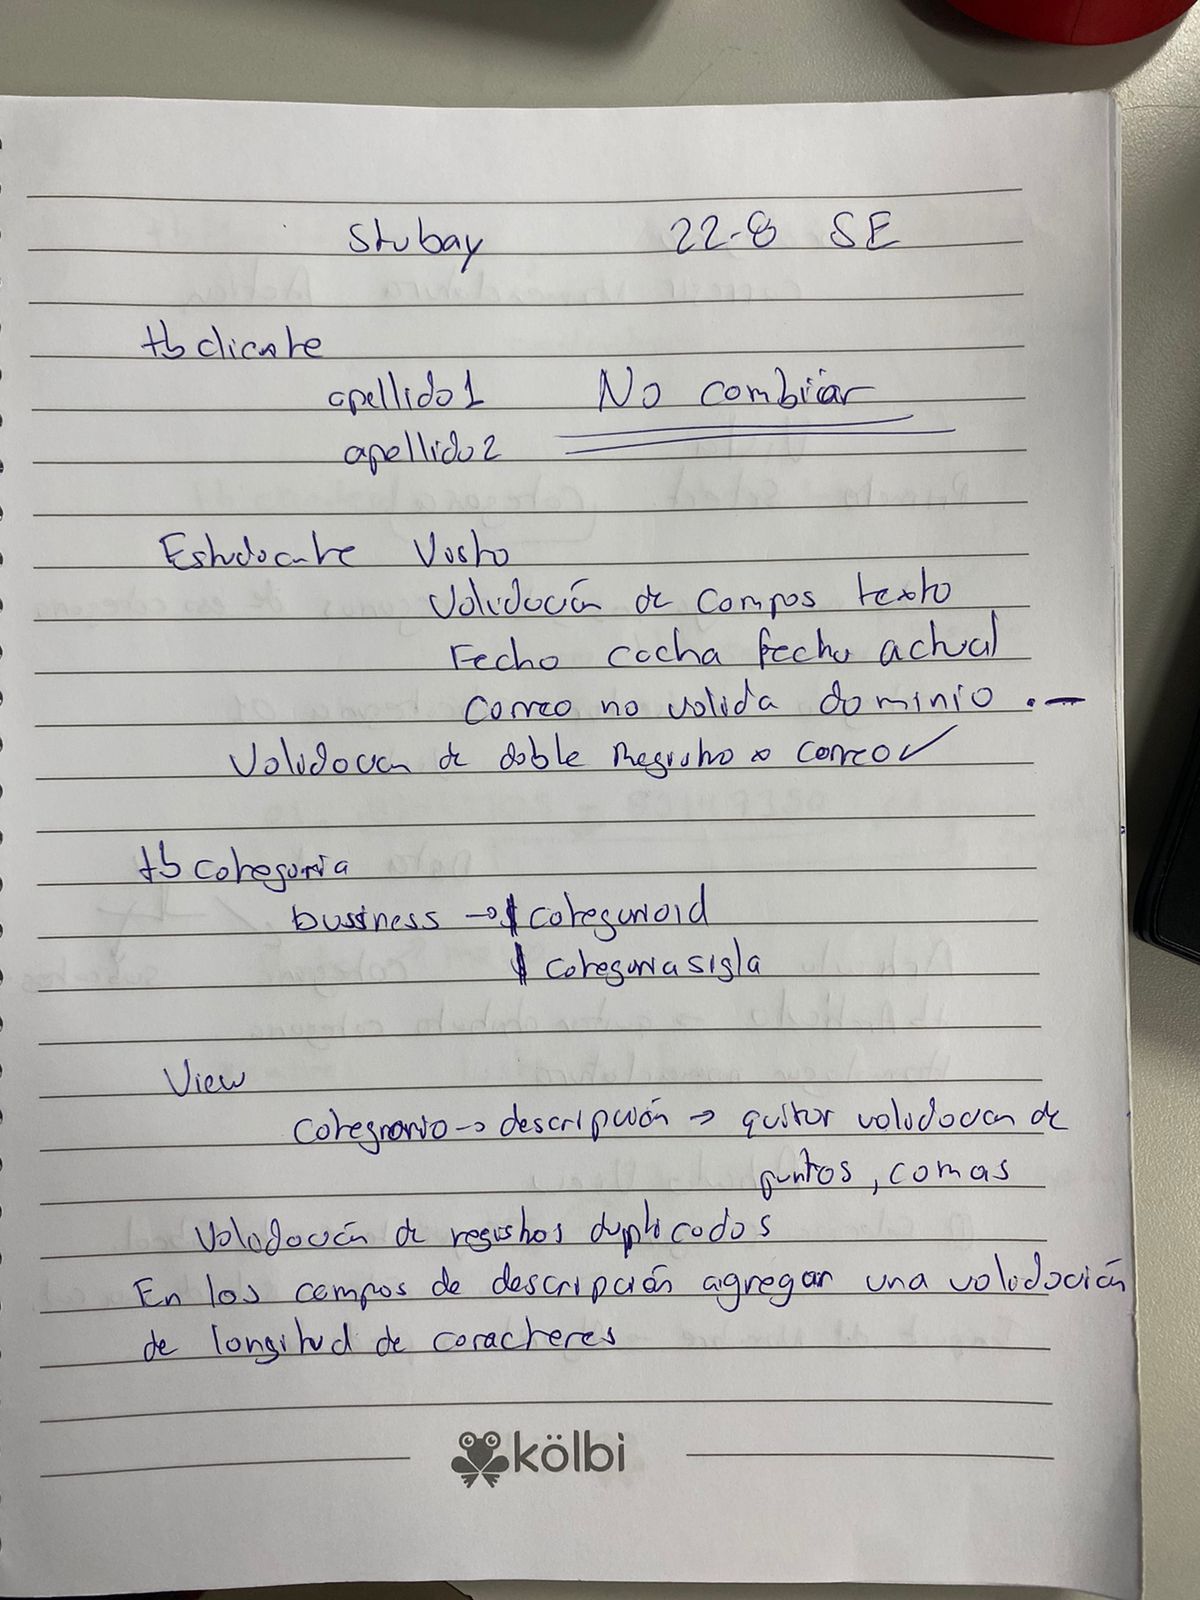 Stubay 22-8 SE
tb cliente
apellido1 No cambiar
apellido2
Estudiante Vista
Validación de campos texto
Fecha cacha fecha actual
correo no valida dominio .-
Validación de doble Registro x correo ✓
tb categoria
bussiness → $ categoriaid
$ categoriasigla
View
Categoria → descripción → quitar validación de
puntos, comas
Validación de registros duplicados
En los campos de descripción agregar una validación
de longitud de caracteres
kölbi